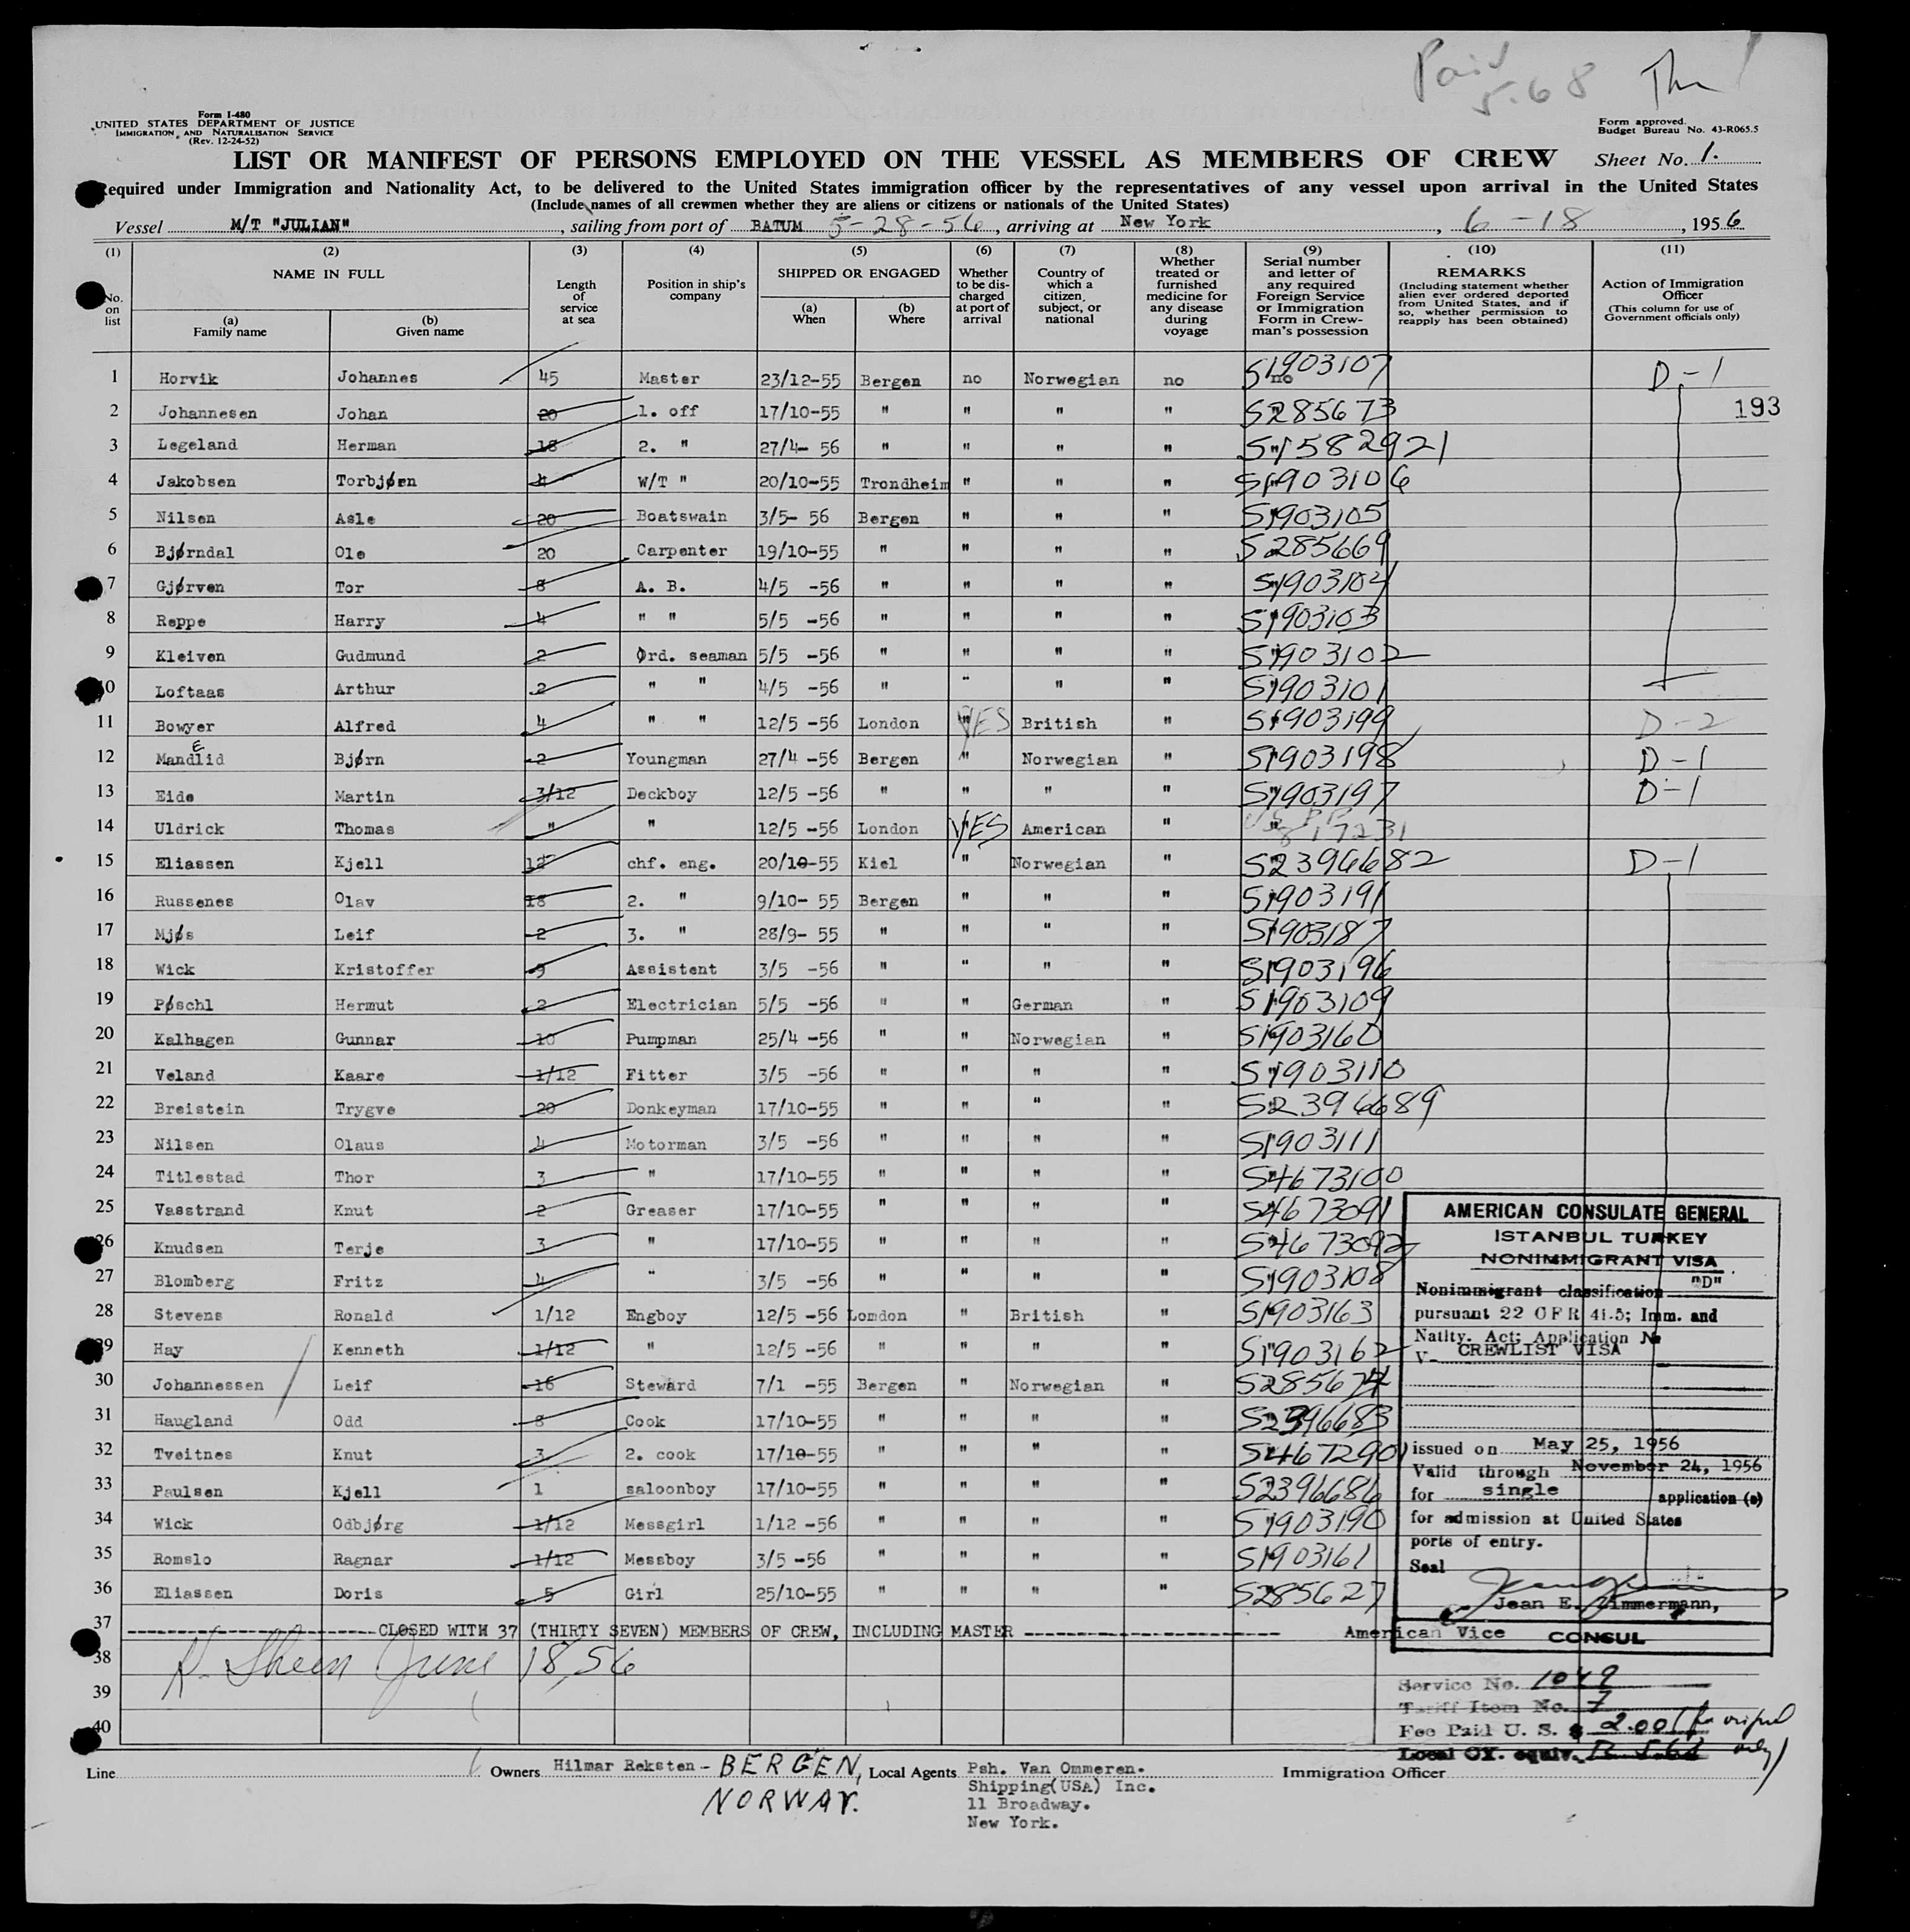 Paid
5.68
Form I-480
UNITED STATES DEPARTMENT OF JUSTICE
IMMIGRATION AND NATURALISATION SERVICE
(Rev. 12-24-52)
Form approved.
Budget Bureau No. 43-R065.5
LIST OR MANIFEST OF PERSONS EMPLOYED ON THE VESSEL AS MEMBERS OF CREW Sheet No. 1.
Required under Immigration and Nationality Act, to be delivered to the United States immigration officer by the representatives of any vessel upon arrival in the United States
(Include names of all crewmen whether they are aliens or citizens or nationals of the United States)
Vessel M/T "JULIAN", sailing from port of BATUM 5-28-56, arriving at New York, 6-18, 1956
(1) (2) (3) (4) (5) (6) (7) (8) (9) (10) (11)
No. on list
NAME IN FULL
(a) Family name
(b) Given name
Length of service at sea
Position in ship's company
SHIPPED OR ENGAGED
(a) When
(b) Where
Whether to be discharged at port of arrival
Country of which a citizen, subject, or national
Whether treated or furnished medicine for any disease during voyage
Serial number and letter of any required Foreign Service or Immigration Form in Crewman's possession
REMARKS
(Including statement whether alien ever ordered deported from United States, and if so, whether permission to reapply has been obtained)
Action of Immigration Officer
(This column for use of Government officials only)
1 Horvik Johannes 45 Master 23/12-55 Bergen no Norwegian no no S1903107 D-1
2 Johannesen Johan 20 1. off 17/10-55 " " " " S285673 193
3 Legeland Herman 18 2. " 27/4- 56 " " " " S1582921
4 Jakobsen Torbjørn 4 W/T " 20/10-55 Trondheim " " " S1903106
5 Nilsen Asle 20 Boatswain 3/5- 56 Bergen " " " S1903105
6 Bjørndal Ole 20 Carpenter 19/10-55 " " " " S285669
7 Gjørven Tor 8 A. B. 4/5 -56 " " " " S1903104
8 Reppe Harry 4 " " 5/5 -56 " " " " S1903103
9 Kleiven Gudmund 2 Ord. seaman 5/5 -56 " " " " S1903102
10 Loftaas Arthur 2 " " 4/5 -56 " " " " S1903101
11 Bowyer Alfred 4 " " 12/5 -56 London " YES British " S1903199 D-2
12 Mandlid E Bjørn 2 Youngman 27/4 -56 Bergen " Norwegian " S1903198 D-1
13 Eide Martin 3/12 Deckboy 12/5 -56 " " " " S1903197 D-1
14 Uldrick Thomas " " 12/5 -56 London YES American "
15 Eliassen Kjell 12 chf. eng. 20/10-55 Kiel " Norwegian " S2396682 D-1
16 Russenes Olav 18 2. " 9/10- 55 Bergen " " " S1903191
17 Mjøs Leif 2 3. " 28/9- 55 " " " " S1903187
18 Wick Kristoffer 9 Assistent 3/5 -56 " " " " S1903196
19 Pøschl Hermut 2 Electrician 5/5 -56 " " German " S1903109
20 Kalhagen Gunnar 10 Pumpman 25/4 -56 " " Norwegian " S1903160
21 Veland Kaare 1/12 Fitter 3/5 -56 " " " " S1903110
22 Breistein Trygve 20 Donkeyman 17/10-55 " " " " S2396689
23 Nilsen Olaus 4 Motorman 3/5 -56 " " " " S1903111
24 Titlestad Thor 3 " 17/10-55 " " " " S4673100
25 Vasstrand Knut 2 Greaser 17/10-55 " " " " S4673091
26 Knudsen Terje 3 " 17/10-55 " " " " S4673092
27 Blomberg Fritz 4 " 3/5 -56 " " " " S1903108
28 Stevens Ronald 1/12 Engboy 12/5 -56 London " British " S1903163
29 Hay Kenneth 1/12 " 12/5 -56 " " " " S1903162
30 Johannessen Leif 16 Steward 7/1 -55 Bergen " Norwegian " S285674
31 Haugland Odd 8 Cook 17/10-55 " " " " S2396683
32 Tveitnes Knut 3 2. cook 17/10-55 " " " " S4672901
33 Paulsen Kjell 1 saloonboy 17/10-55 " " " " S2396686
34 Wick Odbjørg 1/12 Messgirl 1/12 -56 " " " " S1903190
35 Romslo Ragnar 1/12 Messboy 3/5 -56 " " " " S1903161
36 Eliassen Doris 5 Girl 25/10-55 " " " " S285627
37 CLOSED WITH 37 (THIRTY SEVEN) MEMBERS OF CREW, INCLUDING MASTER
38 June 18/56
39
40
AMERICAN CONSULATE GENERAL
ISTANBUL TURKEY
NONIMMIGRANT VISA
Nonimmigrant classification "D"
pursuant 22 CFR 41.5; Imm. and
Natlty. Act; Application No
V- CREWLIST VISA
issued on May 25, 1956
Valid through November 24, 1956
for single application (s)
for admission at United States
ports of entry.
Seal
Jean E. Zimmermann,
American Vice CONSUL
Service No. 1049
Tariff Item No. 7
Fee Paid U. S. $ 2.00 (for original only)
Local CY. equiv.
Line Owners Hilmar Reksten - BERGEN, NORWAY. Local Agents Psh. Van Ommeren. Immigration Officer
Shipping(USA) Inc.
11 Broadway.
New York.